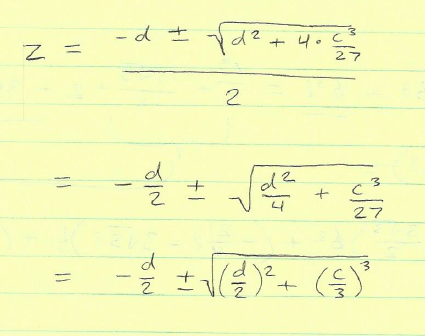 z = (-d ± √(d² + 4 · c³/27))/2
= -d/2 ± √(d²/4 + c³/27)
= -d/2 ± √((d/2)² + (c/3)³)